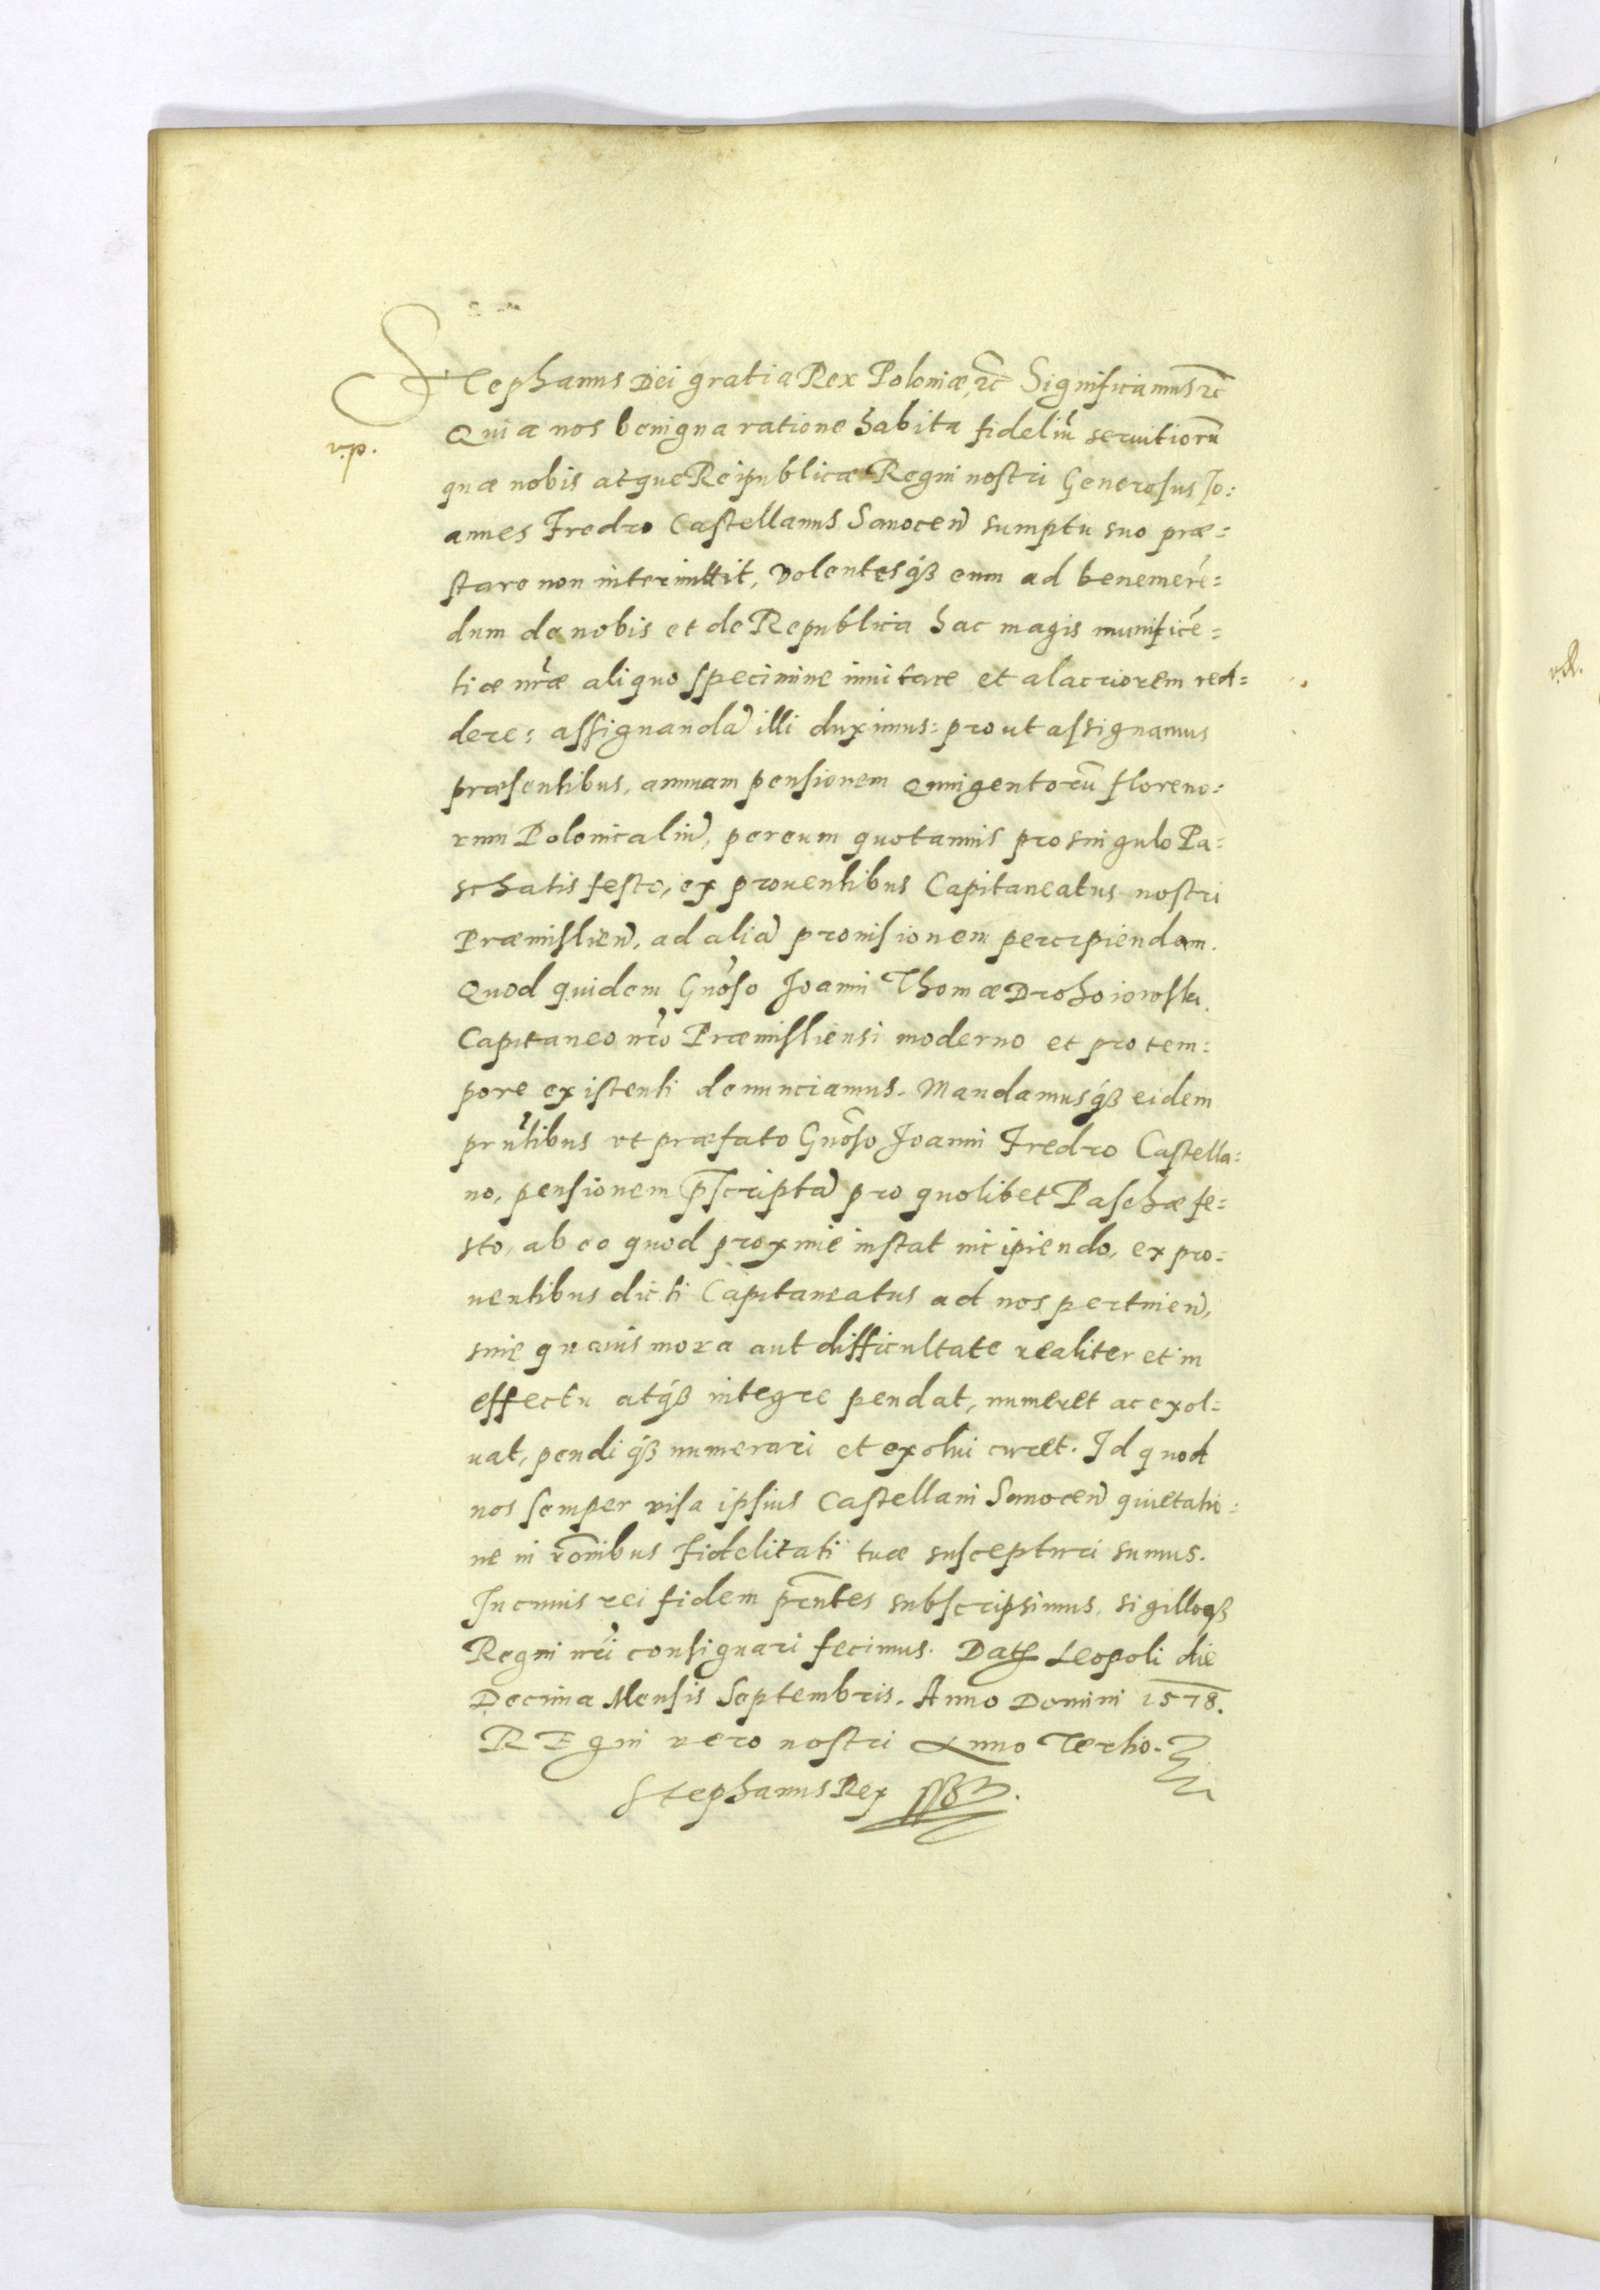 Stephanus Dei gratia Rex Poloniæ, rc̃ Significamus rc̃
v.p.
Quia nos benigna ratione habita fideliũ seruitiorũ
quæ nobis atque Reipublicæ Regni nostri Generosus Jo:
annes Fredro Castellanus Sanocen̄ sumptu suo præ:
stare non intermittit, volentesq́ß eum ad benemerẽ:
dum de nobis et de Republica hac magis munificẽ:
tiæ nr̃æ aliquo specimine inuitare et alacriorem red:
dere: assignandã illi duximus: prout assignamus
præsentibus, annuam pensionem Quingentorũ floreno:
rum Polonicaliũ, per eum quotannis pro singulo Pa:
schatis festo, ex prouentibus Capitaneatus nostri
Præmislien̄, ad aliã prouisionem percipiendam.
Quod quidem Gnõso Joanni Thomæ Drohoiowski
Capitaneo nr̃o Præmisliensi moderno et pro tem:
pore existenti denunciamus. Mandamusq́ß eidem
prñtibus vt præfato Gnõso Joanni Fredro Castella:
no, pensionem p̃scriptã pro quolibet Paschæ fe:
sto, ab eo quod proxime instat incipiendo, ex pro:
uentibus dicti Capitaneatus ad nos pertinen̄,
sine quauis mora aut difficultate realiter et in
effectu atq́ß integre pendat, numeret ac exol:
uat, pendiq́ß numerari et exolui curet. Id quod
nos semper visa ipsius Castellani Sanocen̄ quietatio:
ne in rõnibus Fidelitati tuæ suscepturi sumus.
In cuius rei fidem pr̃ntes subscripsimus, sigilloq́ß
Regni nr̃i consignari fecimus. Datʒ Leopoli die
Decima Mensis Septembris. Anno Domini 1578.
REgni vero nostri Anno Tertio.
Stephanus Rex ssßt.